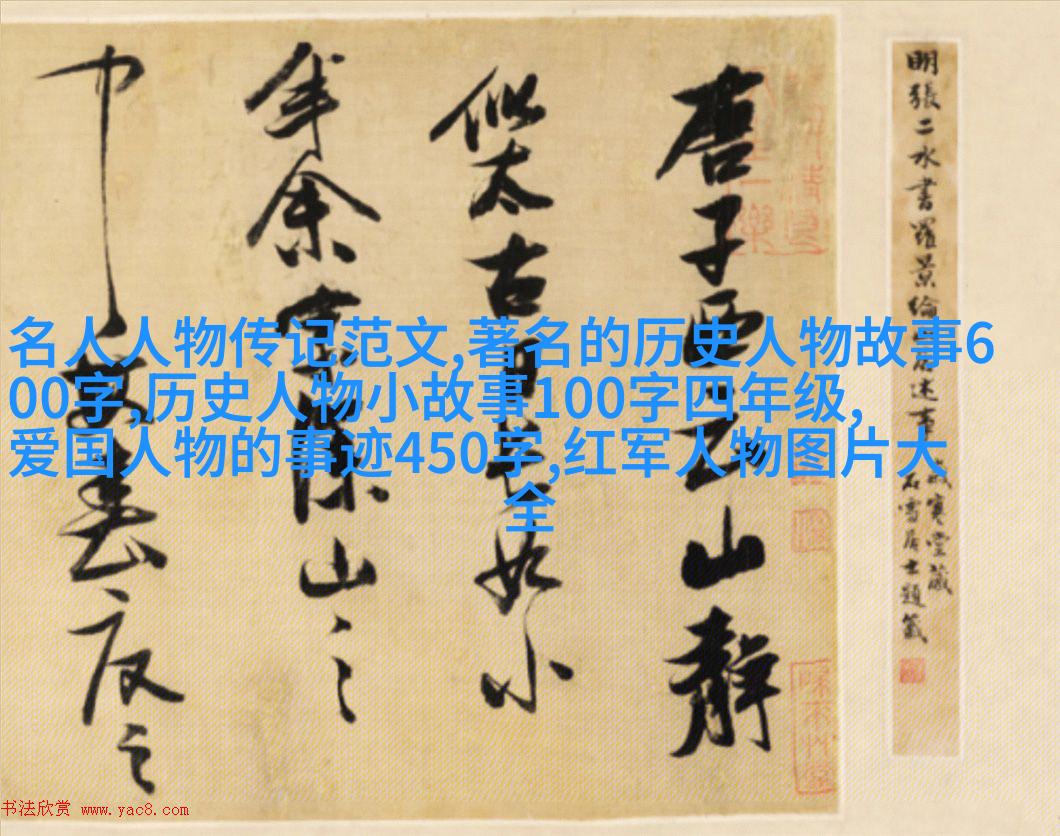 名人人物传记范文,著名的历史人物故事6
00字,历史人物小故事100字四年级,
爱国人物的事迹450字,红军人物图片大
全
明張二水書羅景綸居述事
歲寒堂藏
石雪居士題籤
唐子西云山靜
似太古日長如小
年余家深山之
中每春夏之
书法欣赏 www.yac8.com